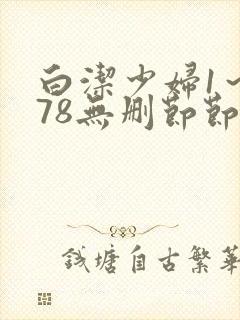 白潔少婦1~
78無删節節
钱塘自古繁華